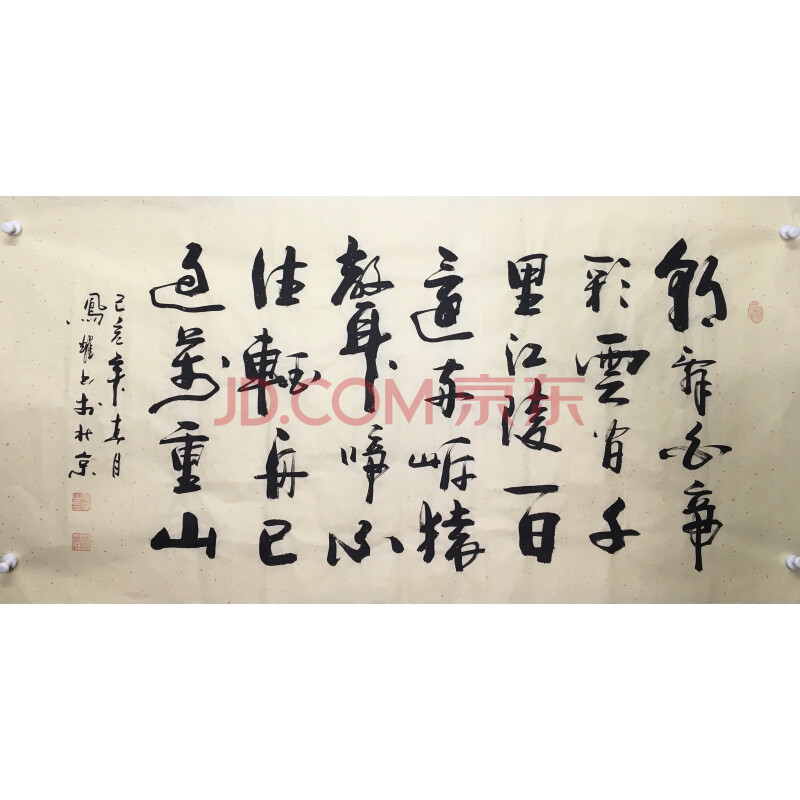 朝辞白帝
彩雲间千
里江陵一日
還两岸猿
聲啼不
住輕舟已
過萬重山
己亥年春月
鳳耀书於北京
JD.COM 京东